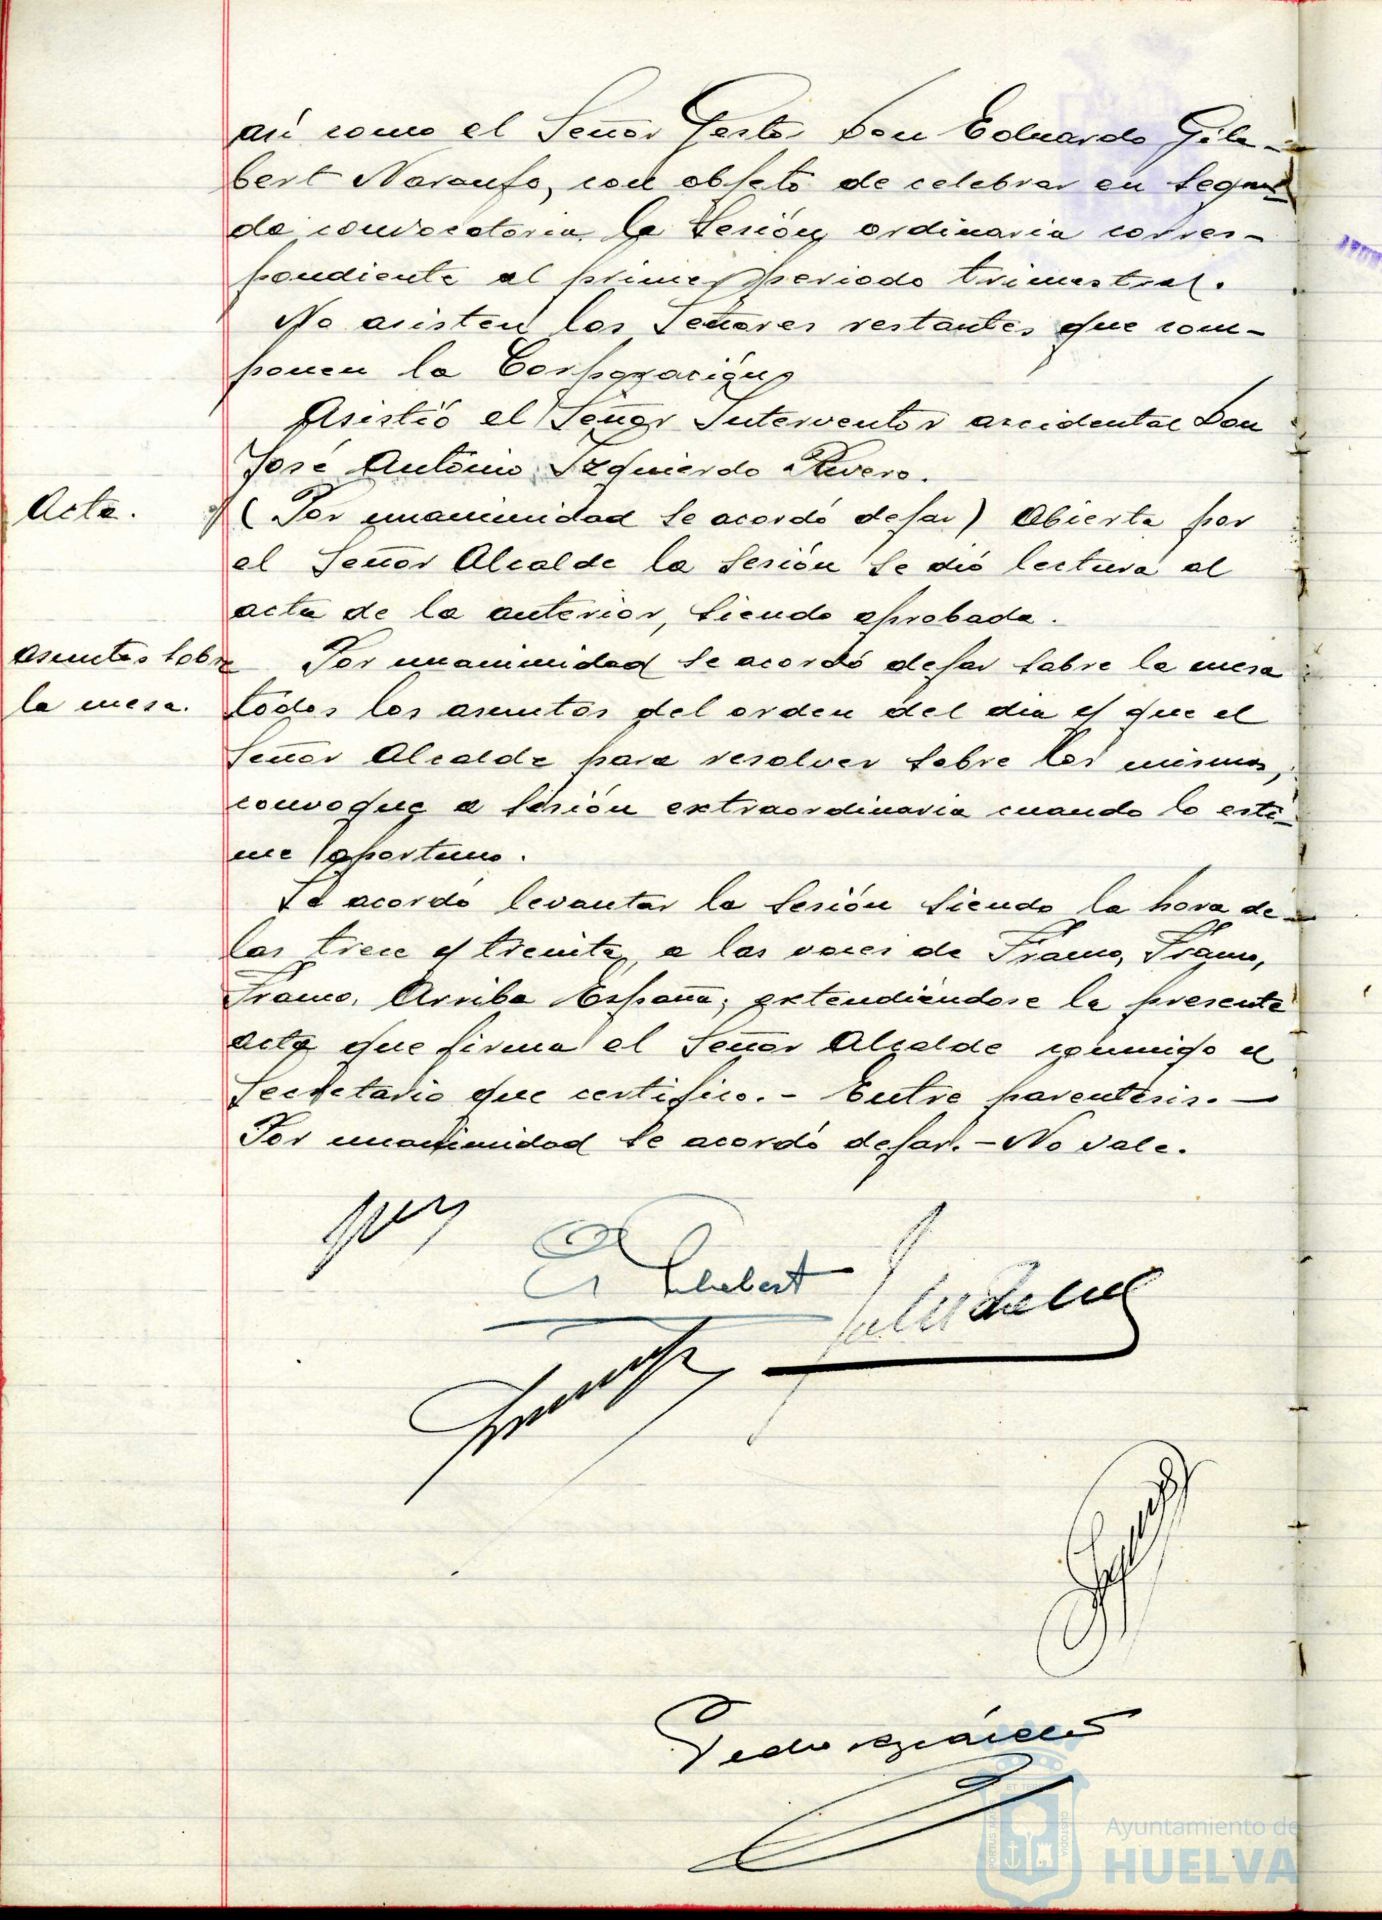 así como el Señor Gestor Don Eduardo Gila-
bert Naranjo, con objeto de celebrar en segun-
da convocatoria la Sesión ordinaria corres-
pondiente al primer periodo trimestral.
No asisten los Señores restantes que com-
ponen la Corporación,
Asistió el Señor Interventor accidental Don
José Antonio Izquierdo Rivero.
Acta.
(Por unanimidad se acordó dejar) Abierta por
el Señor Alcalde la sesión se dió lectura al
acta de la anterior, siendo aprobada.
asuntos sobre
la mesa.
Por unanimidad se acordó dejar sobre la mesa
todos los asuntos del orden del dia y que el
Señor Alcalde para resolver sobre los mismos,
convoque a sesión extraordinaria cuando lo esti-
me oportuno.
Se acordó levantar la sesión siendo la hora de
las trece y treinta, a las voces de Franco, Franco,
Franco, Arriba España; extendiéndose la presente
acta que firma el Señor Alcalde conmigo el
Secretario que certifico.- Entre parentesis.-
Por unanimidad se acordó dejar.- No vale.
Ayuntamiento de
HUELVA